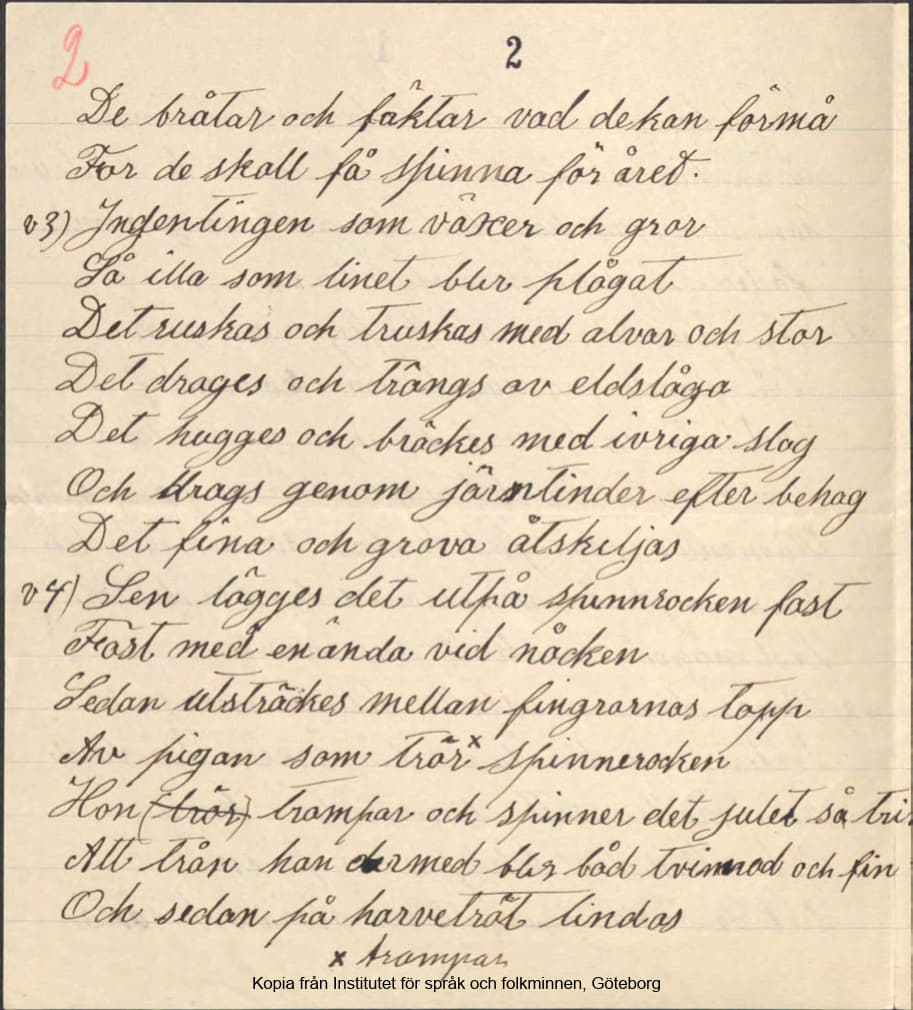 2
2
De bråtar och fäktar vad de kan förmå
For de skall få spinna för året.
v3) Ingentingen som växer och gror
Så illa som linet blir plågat
Det ruskas och truskas med alvar och stor
Det drages och trängs av eldslåga
Det hugges och bräckes med ivriga slag
Och drags genom järntinder efter behag
Det fina och grova åtskiljas
v4) Sen lägges det utpå spinnrocken fast
Fast med en ända vid nåcken
Sedan utsträckes mellan fingrarnas topp
Av pigan som trör x spinnerocken
Hon (trör) trampar och spinner det julet så
Att trån han därmed blir båd tvinnad och fin
Och sedan på harveträt lindas
x trampar
Kopia från Institutet för språk och folkminnen, Göteborg